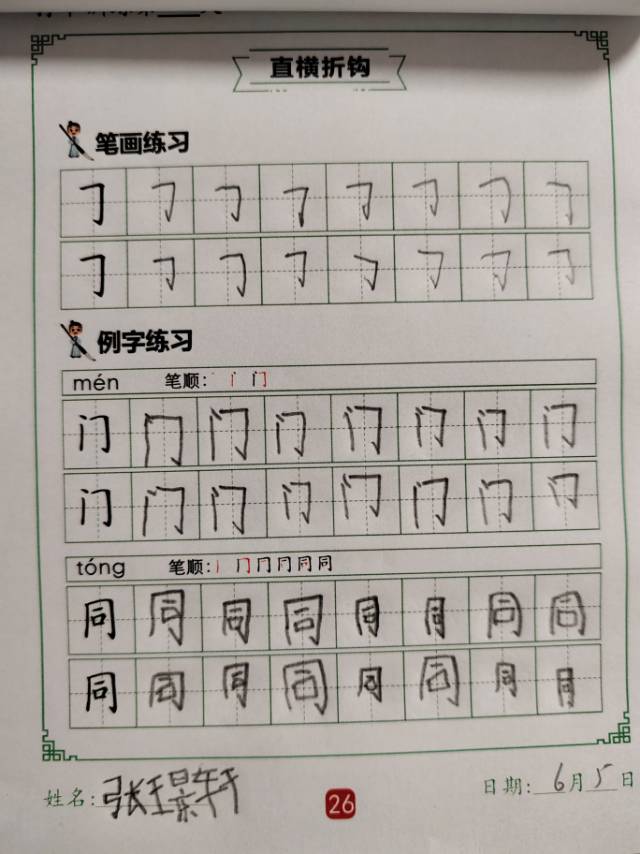 直横折钩
笔画练习
㇆ ㇆ ㇆ ㇆ ㇆ ㇆ ㇆ ㇆
㇆ ㇆ ㇆ ㇆ ㇆ ㇆ ㇆ ㇆
例字练习
mén 笔顺: 门
门 门 门 门 门 门 门 门
门 门 门 门 门 门 门 门
tóng 笔顺: 丨 冂 冂 冂 同 同
同 同 同 同 同 同 同 同
同 同 同 同 同 同 同 同
姓名: 张璟轩
26
日期: 6月5日